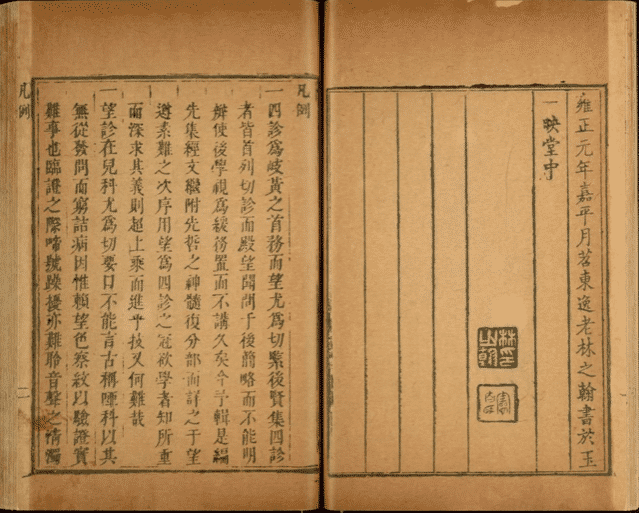 雍正元年嘉平月苕東逸老林之翰書於玉
一映堂中
林印
之翰
凡例
一四診爲岐黃之首務而望尤爲切緊後賢集四診
者皆首列切診而殿望聞問于後簡略而不能明
辨使後學視爲緩務置而不講久矣今予輯是編
先集經文繼附先哲之神髓復分部而詳之于望
遵素難之次序用望爲四診之冠欲學者知所重
而深求其義則超上乘而進乎技又何難哉
一望診在兒科尤爲切要口不能言古稱啞科以其
無從發問而窮詰病因惟賴望色察紋以驗證實
難事也臨證之際啼號躁擾亦難聆音聲之清濁
凡例
二